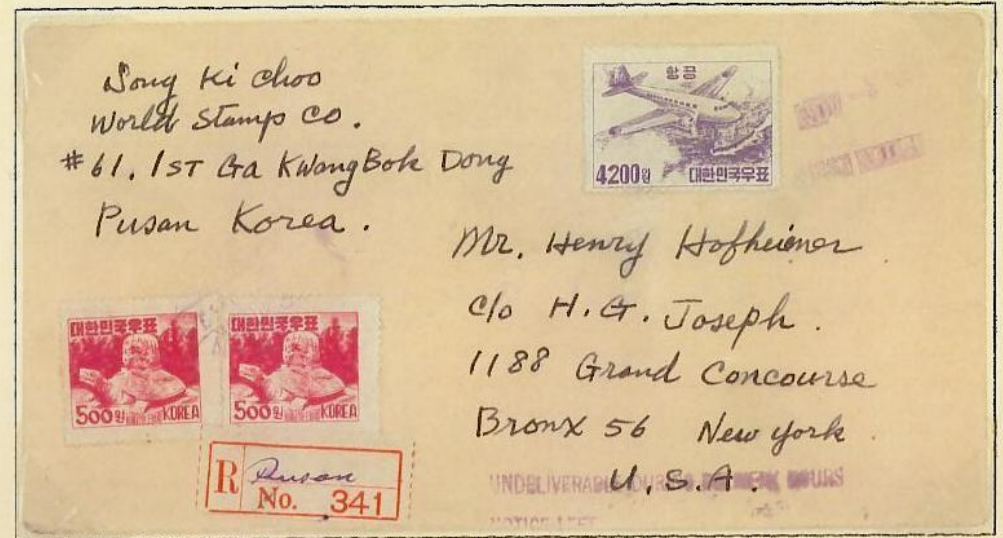 Song Ki Choo
World Stamp Co.
#61. 1ST Ga KwangBok Dong
Pusan Korea.
항공
4200원 대한민국우표
Mr. Henry Hofheimer
c/o H. G. Joseph.
1188 Grand Concourse
Bronx 56 New York
U. S. A.
대한민국우표
500원 KOREA
대한민국우표
500원 KOREA
R Pusan
No. 341
UNDELIVERABLE HOURS
NOTICE LEFT